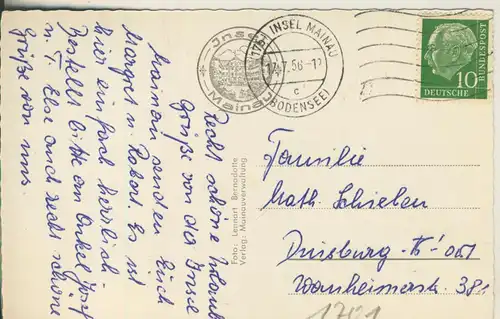 Recht schöne Urlaubs
Grüße von der Insel
Mainau senden Euch
Margot u. Robert. Es ist
hier einfach herrlich
Bestellt bitte an Onkel Josef
u. T. Else auch recht schöne
Grüße von uns.
Foto: Lennart Bernadotte
Verlag: Mainauverwaltung
Insel
Mainau
INSEL MAINAU
7.56
c
(BODENSEE)
10
DEUTSCHE
BUNDESPOST
Familie
Math. Schieben
Duisburg-
Wanheimerstr. 381